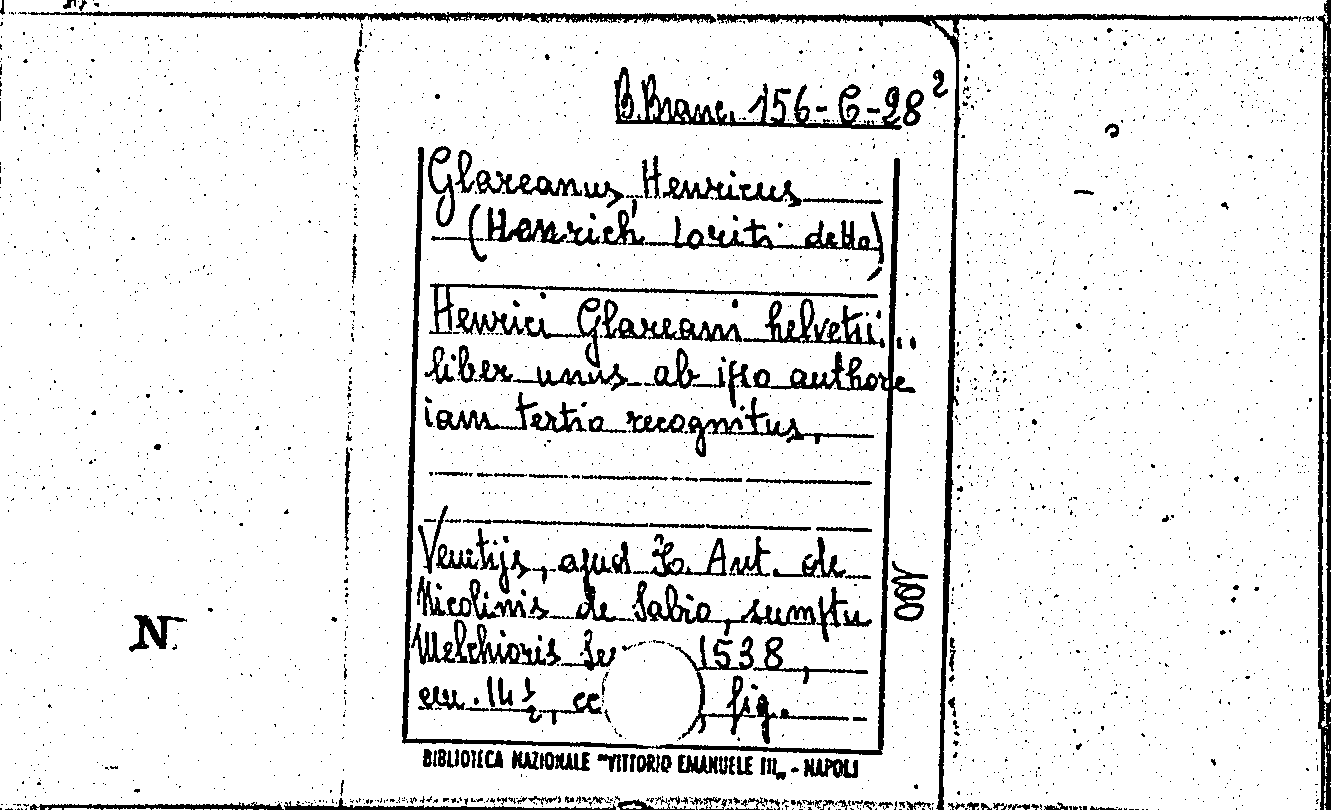 B.Branc. 156-C-28²
Glareanus, Henricus
(Henrich Loriti detto)
Henrici Glareani helvetii...
liber unus ab ipso authore
iam tertio recognitus,
Venetijs, apud Io. Ant. de
Nicolinis de Sabio, sumptu
Melchioris 1538,
cm. 14½, fig.
N
BIBLIOTECA NAZIONALE "VITTORIO EMANUELE III„ - NAPOLI